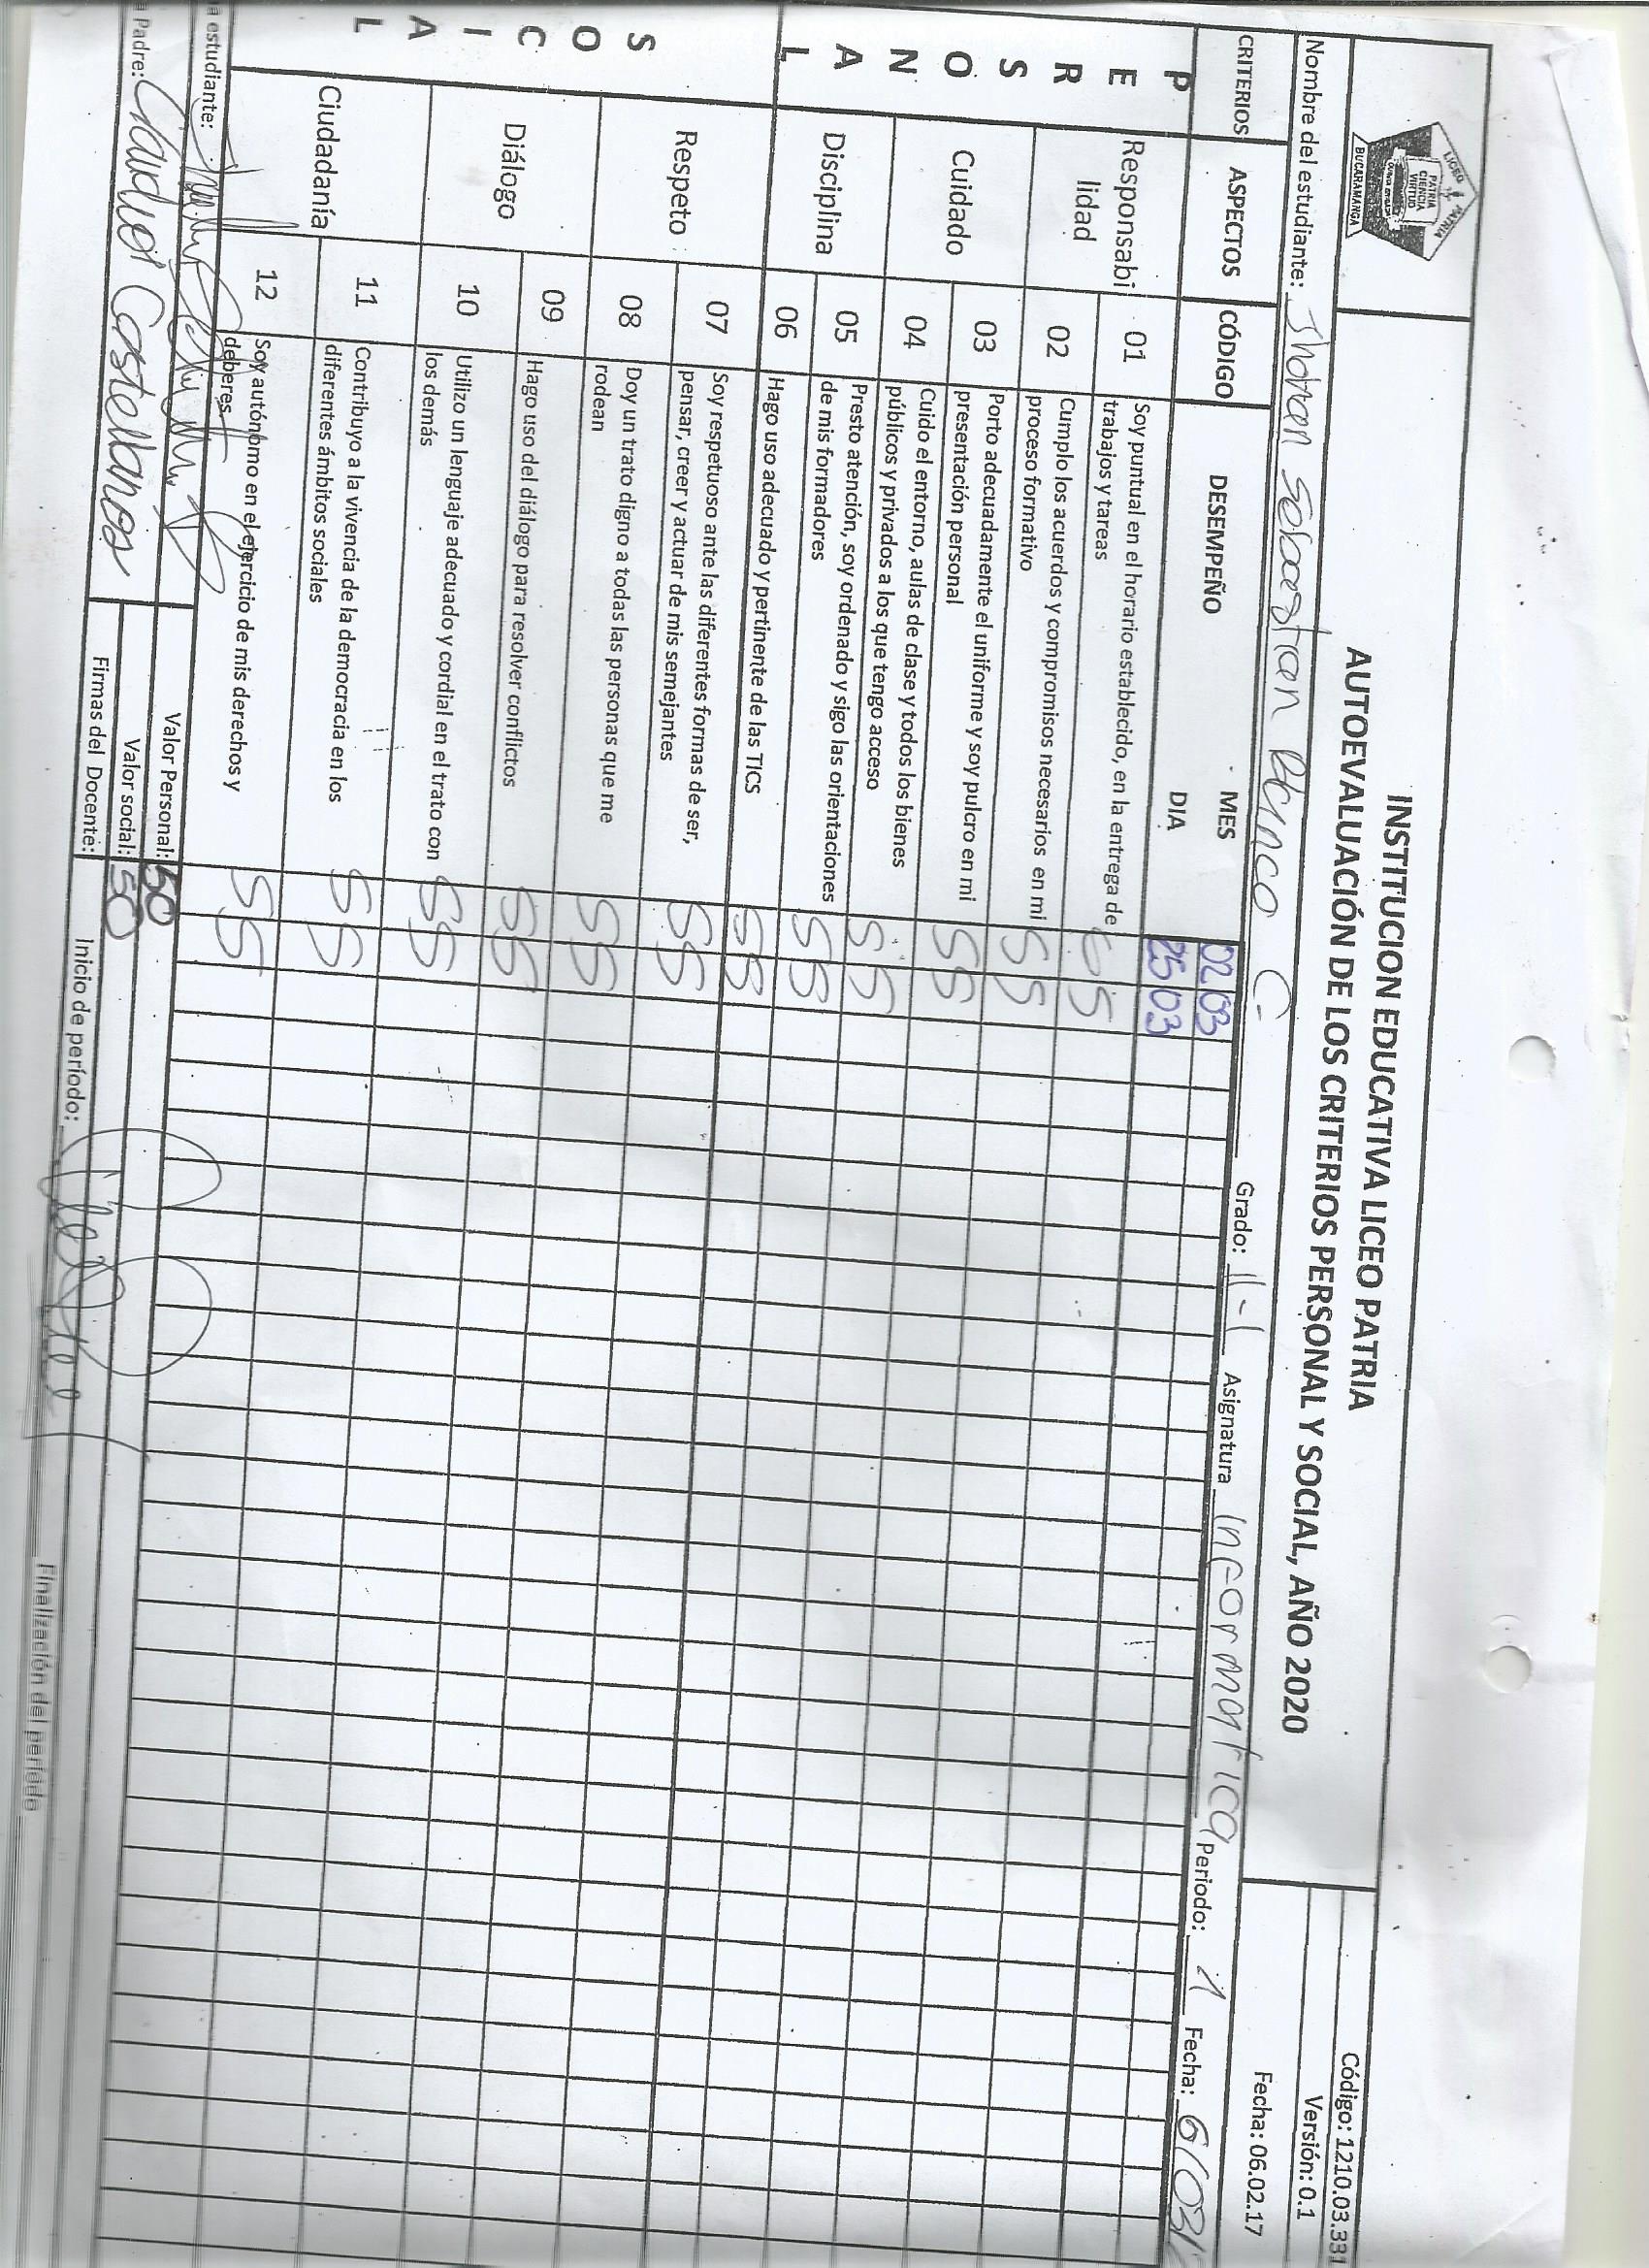 LICEO PATRIA
PATRIA
CIENCIA
VIRTUD
BUCARAMANGA
INSTITUCION EDUCATIVA LICEO PATRIA
AUTOEVALUACIÓN DE LOS CRITERIOS PERSONAL Y SOCIAL, AÑO 2020
Código: 1210.03.331
Versión: 0.1
Fecha: 06.02.17
Nombre del estudiante: Jhoan Sebastian C- Grado: 11-1 Asignatura Informatica Período: 1 Fecha: 6/03/
CRITERIOS ASPECTOS CÓDIGO DESEMPEÑO MES 02 03
DIA 25 03
PERSONAL
Responsabi
lidad
01 Soy puntual en el horario establecido, en la entrega de
trabajos y tareas 5
02 Cumplo los acuerdos y compromisos necesarios en mi
proceso formativo 5 5
Cuidado
03 Porto adecuadamente el uniforme y soy pulcro en mi
presentación personal 5 5
04 Cuido el entorno, aulas de clase y todos los bienes
públicos y privados a los que tengo acceso 5 5
Disciplina
05 Presto atención, soy ordenado y sigo las orientaciones
de mis formadores 5 5
06 Hago uso adecuado y pertinente de las TICS 5 5
SOCIAL
Respeto
07 Soy respetuoso ante las diferentes formas de ser,
pensar, creer y actuar de mis semejantes 5 5
08 Doy un trato digno a todas las personas que me
rodean 5 5
Diálogo
09 Hago uso del diálogo para resolver conflictos 5 5
10 Utilizo un lenguaje adecuado y cordial en el trato con
los demás 5 5
Ciudadanía
11 Contribuyo a la vivencia de la democracia en los
diferentes ámbitos sociales 5 5
12 Soy autónomo en el ejercicio de mis derechos y
deberes 5 5
estudiante:
Valor Personal: 50
Padre: Claudia Castellanos
Valor social: 50
Firmas del Docente: Inicio de período:
Finalización del período